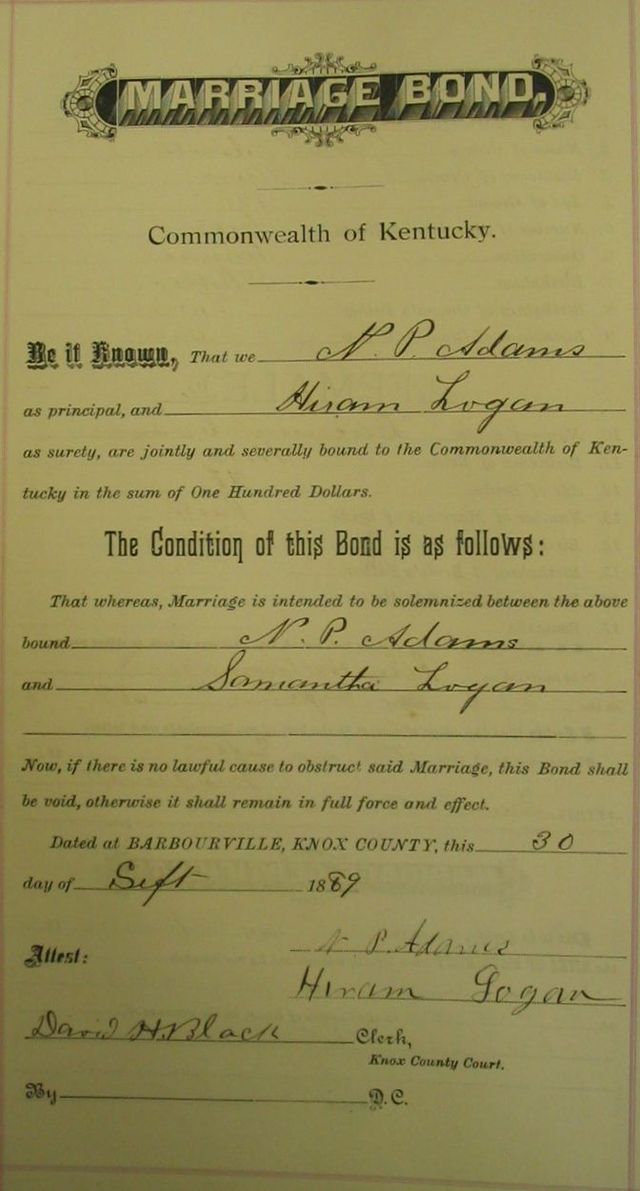 MARRIAGE BOND,
Commonwealth of Kentucky.
Be it Known, That we N. P. Adams
as principal, and Hiram Logan
as surety, are jointly and severally bound to the Commonwealth of Ken-
tucky in the sum of One Hundred Dollars.
The Condition of this Bond is as follows:
That whereas, Marriage is intended to be solemnized between the above
bound N. P. Adams
and Samantha Logan
Now, if there is no lawful cause to obstruct said Marriage, this Bond shall
be void, otherwise it shall remain in full force and effect.
Dated at BARBOURVILLE, KNOX COUNTY, this 30
day of Sept 1889
Attest: N P. Adams
Hiram Logan
David H. Black Clerk,
Knox County Court.
By D. C.